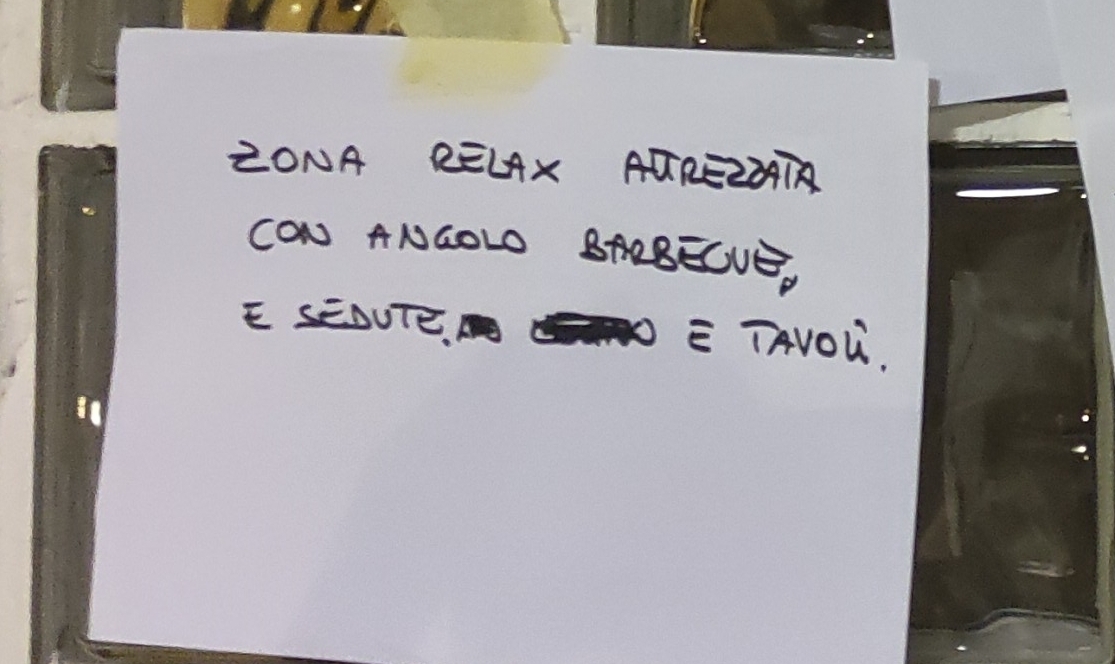 ZONA RELAX ATTREZZATA
CON ANGOLO BARBECUE,
E SEDUTE. E TAVOLI.